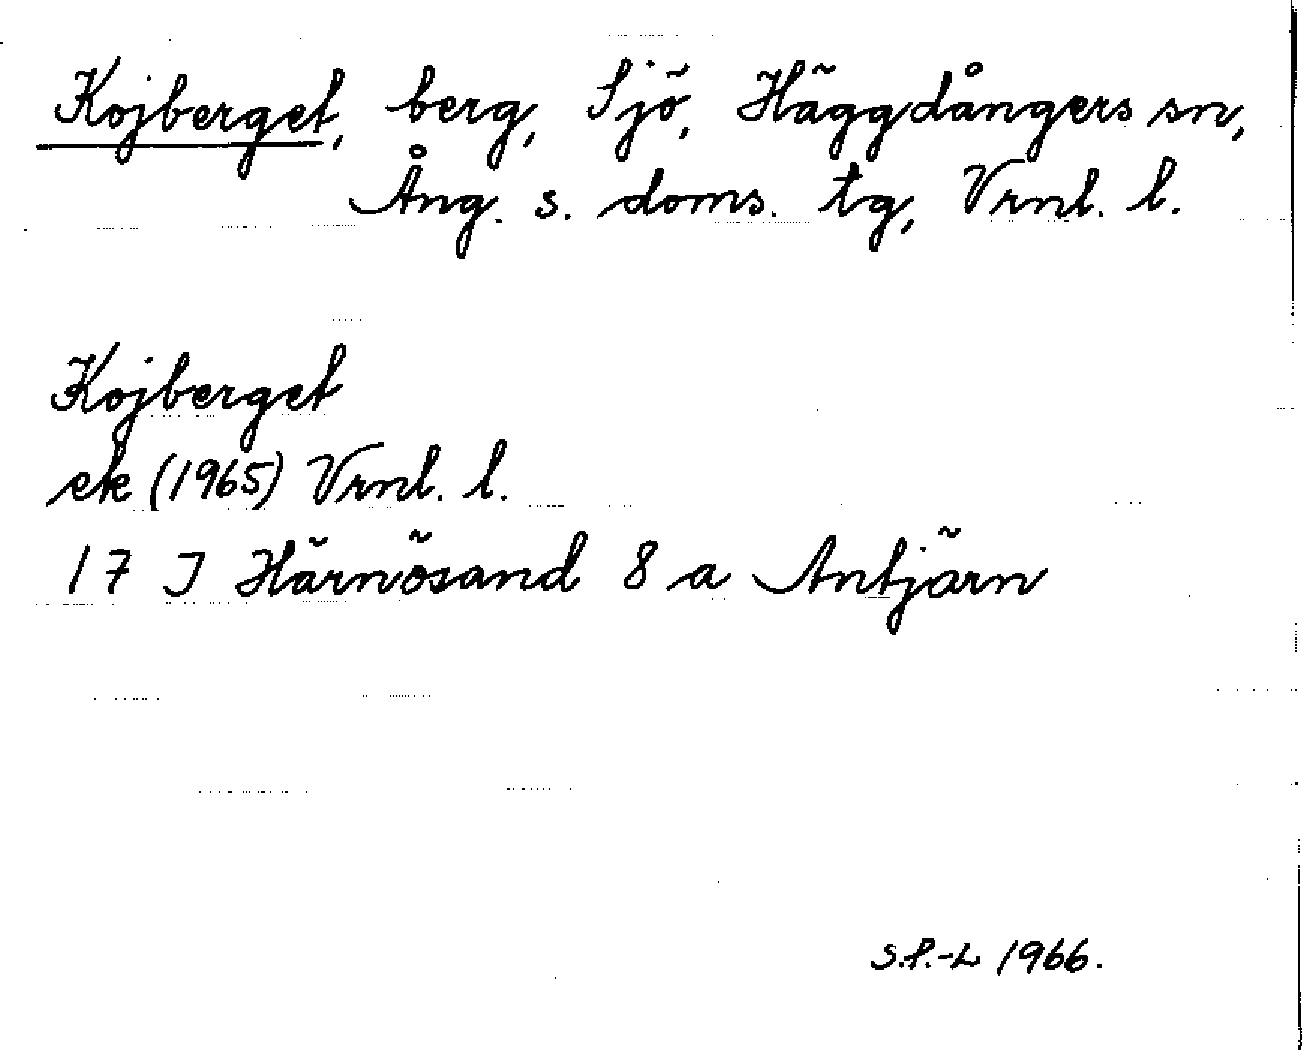 Kojberget, berg, Sjö, Häggdångers sn,
Ång. s. doms. tg, Vrnl. l.
Kojberget
ek (1965) Vrnl. l.
17 I Härnösand 8 a Antjärn
S.P.-L 1966.